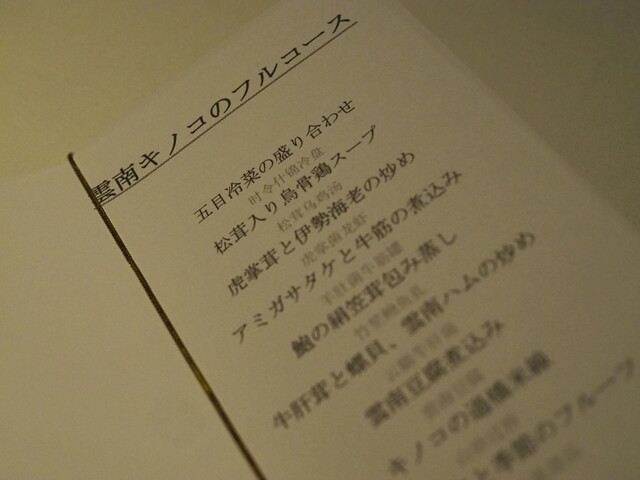 雲南キノコのフルコース
五目冷菜の盛り合わせ
时令什锦冷盘
松茸入り烏骨鶏スープ
松茸乌鸡汤
虎掌茸と伊勢海老の炒め
虎掌菌龙虾
アミガサタケと牛筋の煮込み
羊肚菌牛筋
鮑の絹笠茸包み蒸し
竹笙鲍鱼
牛肝茸と螺貝、雲南ハムの炒め
雲南豆腐煮込み
キノコの過橋米線
と季節のフルーツ